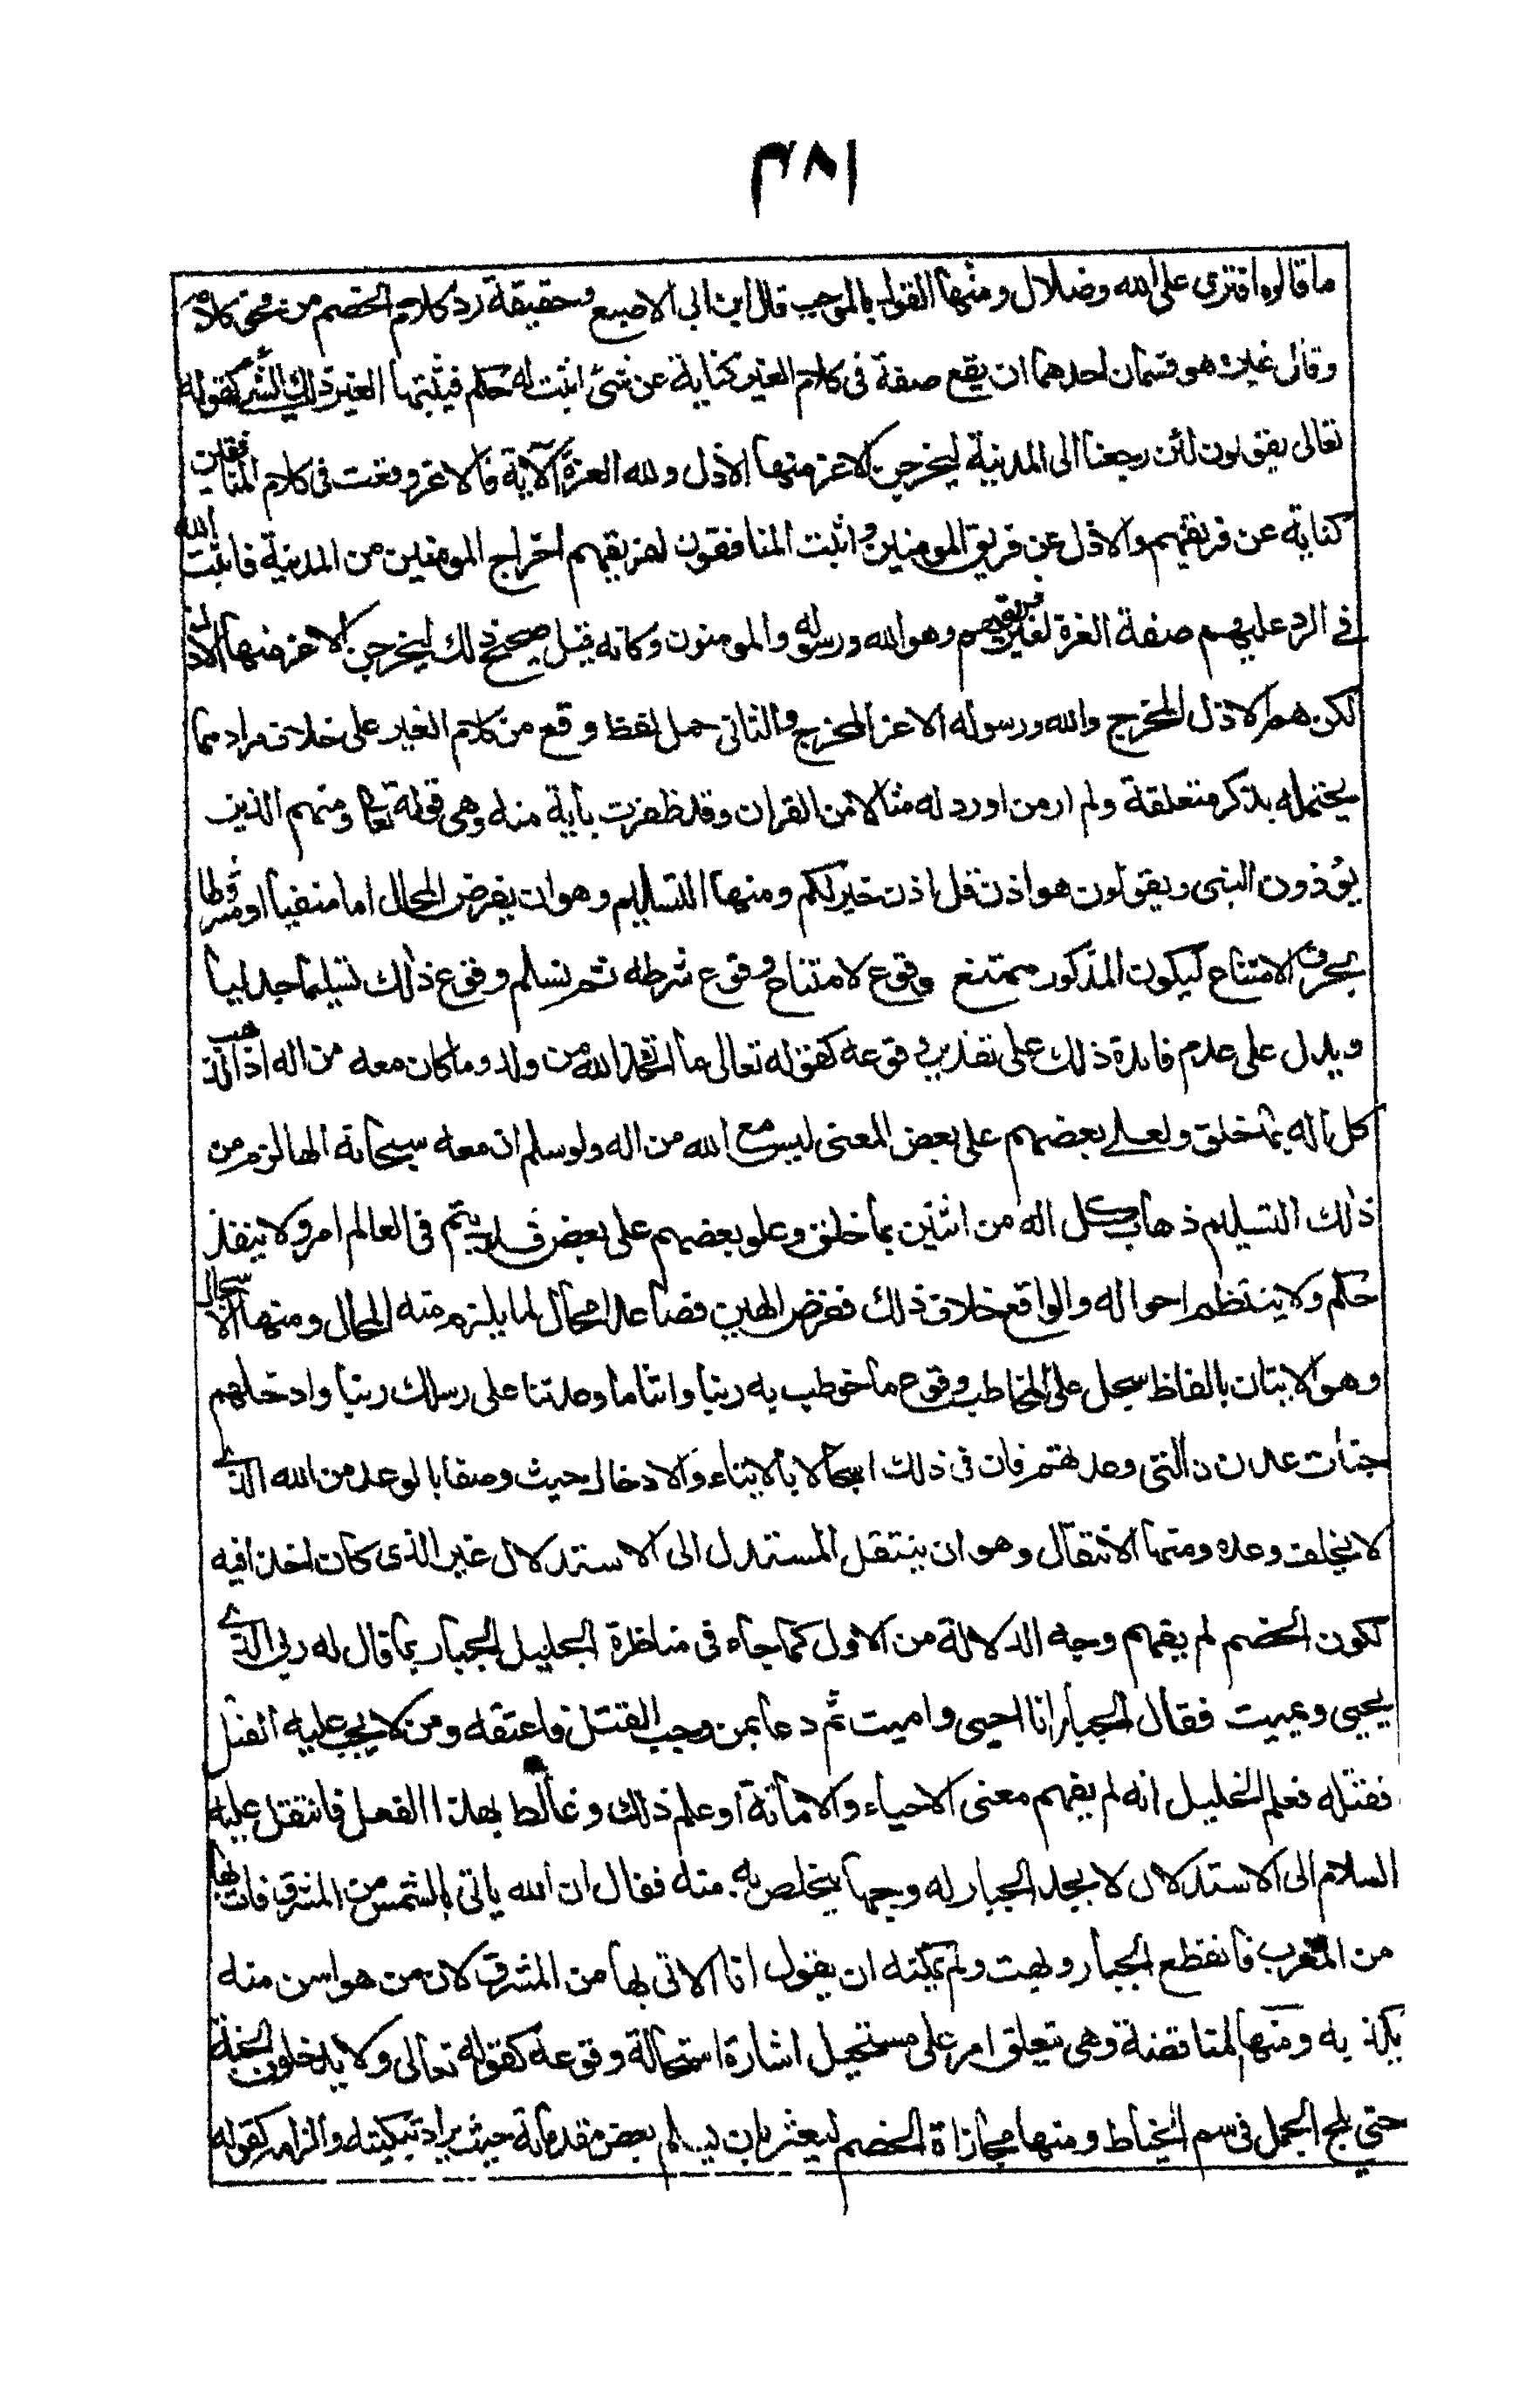 ٣٨١
ما قالوه افترى على الله وضلال ومنها القول بالموجب قال ابن ابى الاصبع وحقيقة رد كلام الخصم من فحوى كلامه
وقال غيره هو قسمان احدهما ان يقع صفة فى كلام الغير كناية عن شئ اثبت له حكم فيثبتها الغير ذلك الشئ كقوله
تعالى يقولون لئن رجعنا الى المدينة ليخرجن الاعز منها الاذل ولله العزة الآية فالاعز وقعت فى كلام المنافقين
كناية عن فريقهم والاذل عن فريق المومنين واثبت المنافقون لفريقهم اخراج المومنين من المدينة فاثبت الله
فى الرد عليهم صفة العزة لغير فريقهم وهو الله ورسوله والمومنون وكانه قيل صحيح ذلك ليخرجن الاعز منها الاذل
لكن هم الاذل المخرج والله ورسوله الاعز المخرج والثانى حمل لفظ وقع من كلام الغير على خلاف مراد مما
يحتمله بذكر متعلقة ولم ار من اورد له مثالا من القران وقد ظفرت بأية منه وهى قوله تعالى ومنهم الذين
يؤذون النبى ويقولون هو اذن قل اذن خير لكم ومنها التسليم وهو ان يفرض المحال اما منفيا او مشروطا
بحرف الامتناع ليكون المذكور ممتنع وقوع لامتناع وقوع شرطه ثم نسلم وقوع ذلك تسليما جدليا
ويدل على عدم فايدة ذلك على تقدير وقوعه كقوله تعالى ما اتخذ الله من ولد وما كان معه من اله اذا لذهب
كل اله بما خلق ولعلى بعضهم على بعض المعنى ليس مع الله من اله ولو سلم ان معه سبحانه الها لزم من
ذلك التسليم ذهاب كل اله من اثنين بما خلق وعلو بعضهم على بعض فلا يتم فى العالم امر ولا ينفذ
حكم ولا ينتظم احواله والواقع خلاف ذلك ففرض الهين فصاعدا محال لما يلزم منه المحال ومنها الاسجال
وهو الاتيان بالفاظ سجل على المخاطب وقوع ما خوطب به ربنا واتنا ما وعدتنا على رسلك ربنا وادخلهم
جنات عدن ن التى وعدتهم فان فى ذلك اسجالا بالايتاء والادخال حيث وصفا بالوعد من الله الذى
لا يخلف وعده ومنها الانتقال وهو ان ينتقل المستدل الى الاستدلال غير الذى كان اخذا فيه
لكون الخصم لم يفهم وجه الدلالة من الاول كما جاء فى مناظرة الجليل الجبار بما قال له ربى الذى
يحيى ويميت فقال الجبار انا احيى واميت ثم دعا بمن وجب القتل فاعتقه ومن لا يجب عليه القتل
فقتله فعلم الخليل انه لم يفهم معنى الاحياء والاماتة او علم ذلك وغالط بهذا الفعل فانتقل عليه
السلام الى الاستدلال لا يجد الجبار له وجها يتخلص به منه فقال ان الله ياتى بالشمس من المشرق فات بها
من المغرب فانقطع الجبار وبهت ولم يمكنه ان يقول انا الاتى بها من المشرق لان من هو اسن منه
يكذ به ومنها المناقضة وهى تتعلق امر على مستحيل اشارة استحالة وقوعه كقوله تعالى ولا يدخلون الجنة
حتى يلج الجمل فى سم الخياط ومنها مجازاة الخصم ليعثر بان يسلم بعض مقدماته حيث يراد تبكيته والزامه كقوله